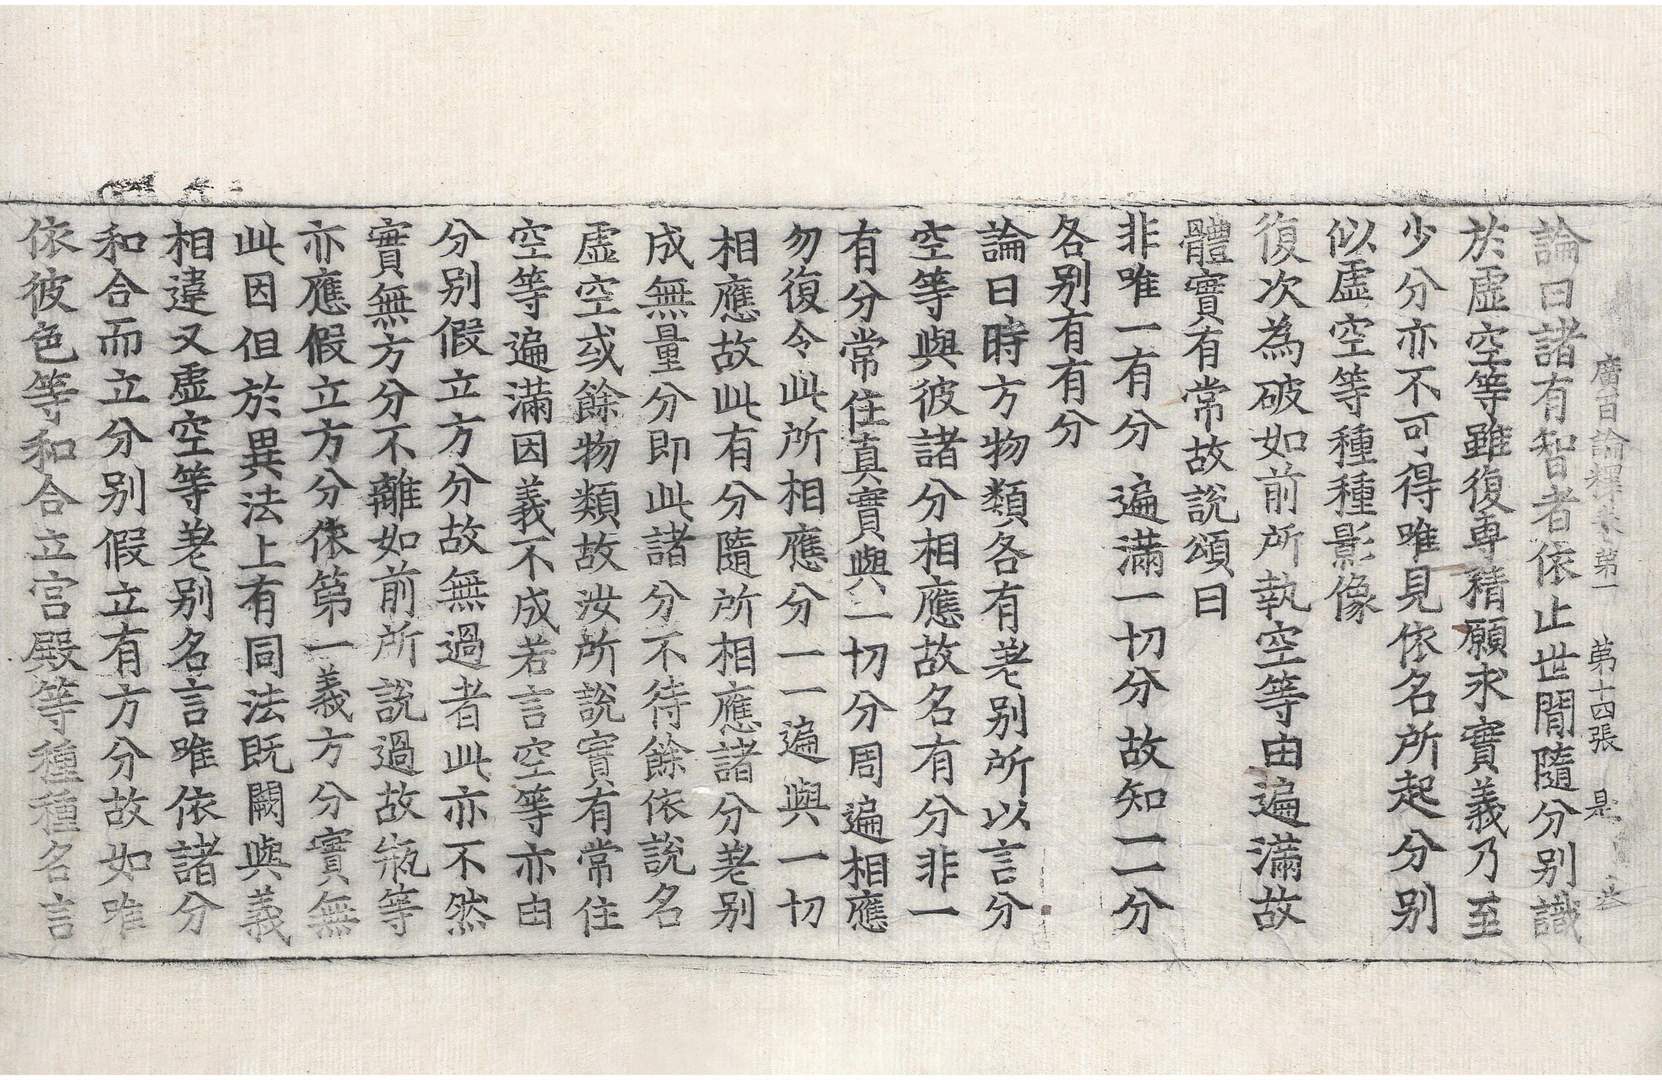 廣百論釋卷第一 第十四張 是
論曰諸有智者依止世間隨分別識
於虛空等雖復專精願求實義乃至
少分亦不可得唯見依名所起分別
似虛空等種種影像
復次為破如前所執空等由遍滿故
體實有常故說頌曰
非唯一有分 遍滿一切分 故知一一分
各別有有分
論曰時方物類各有差別所以言分
空等與彼諸分相應故名有分非一
有分常住真實與一切分周遍相應
勿復令此所相應分一一遍與一切
相應故此有分隨所相應諸分差別
成無量分即此諸分不待餘依說名
虛空或餘物類故汝所說實有常住
空等遍滿因義不成若言空等亦由
分別假立方分故無過者此亦不然
實無方分不離如前所說過故瓶等
亦應假立方分依第一義方分實無
此因但於異法上有同法既闕與義
相違又虛空等差別名言唯依諸分
和合而立分別假立有方分故如唯
依彼色等和合立宮殿等種種名言